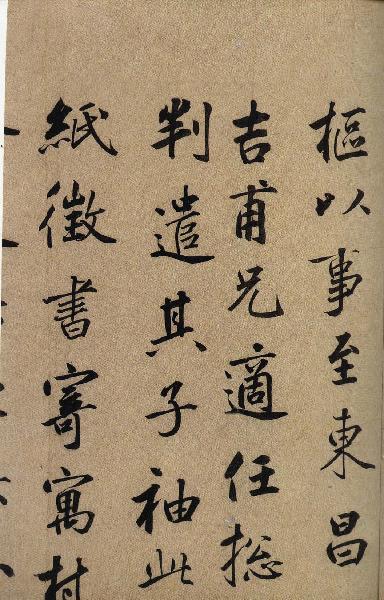 樞以事至東昌
吉甫兄適任総
判遣其子袖此
紙徴書寄寓村